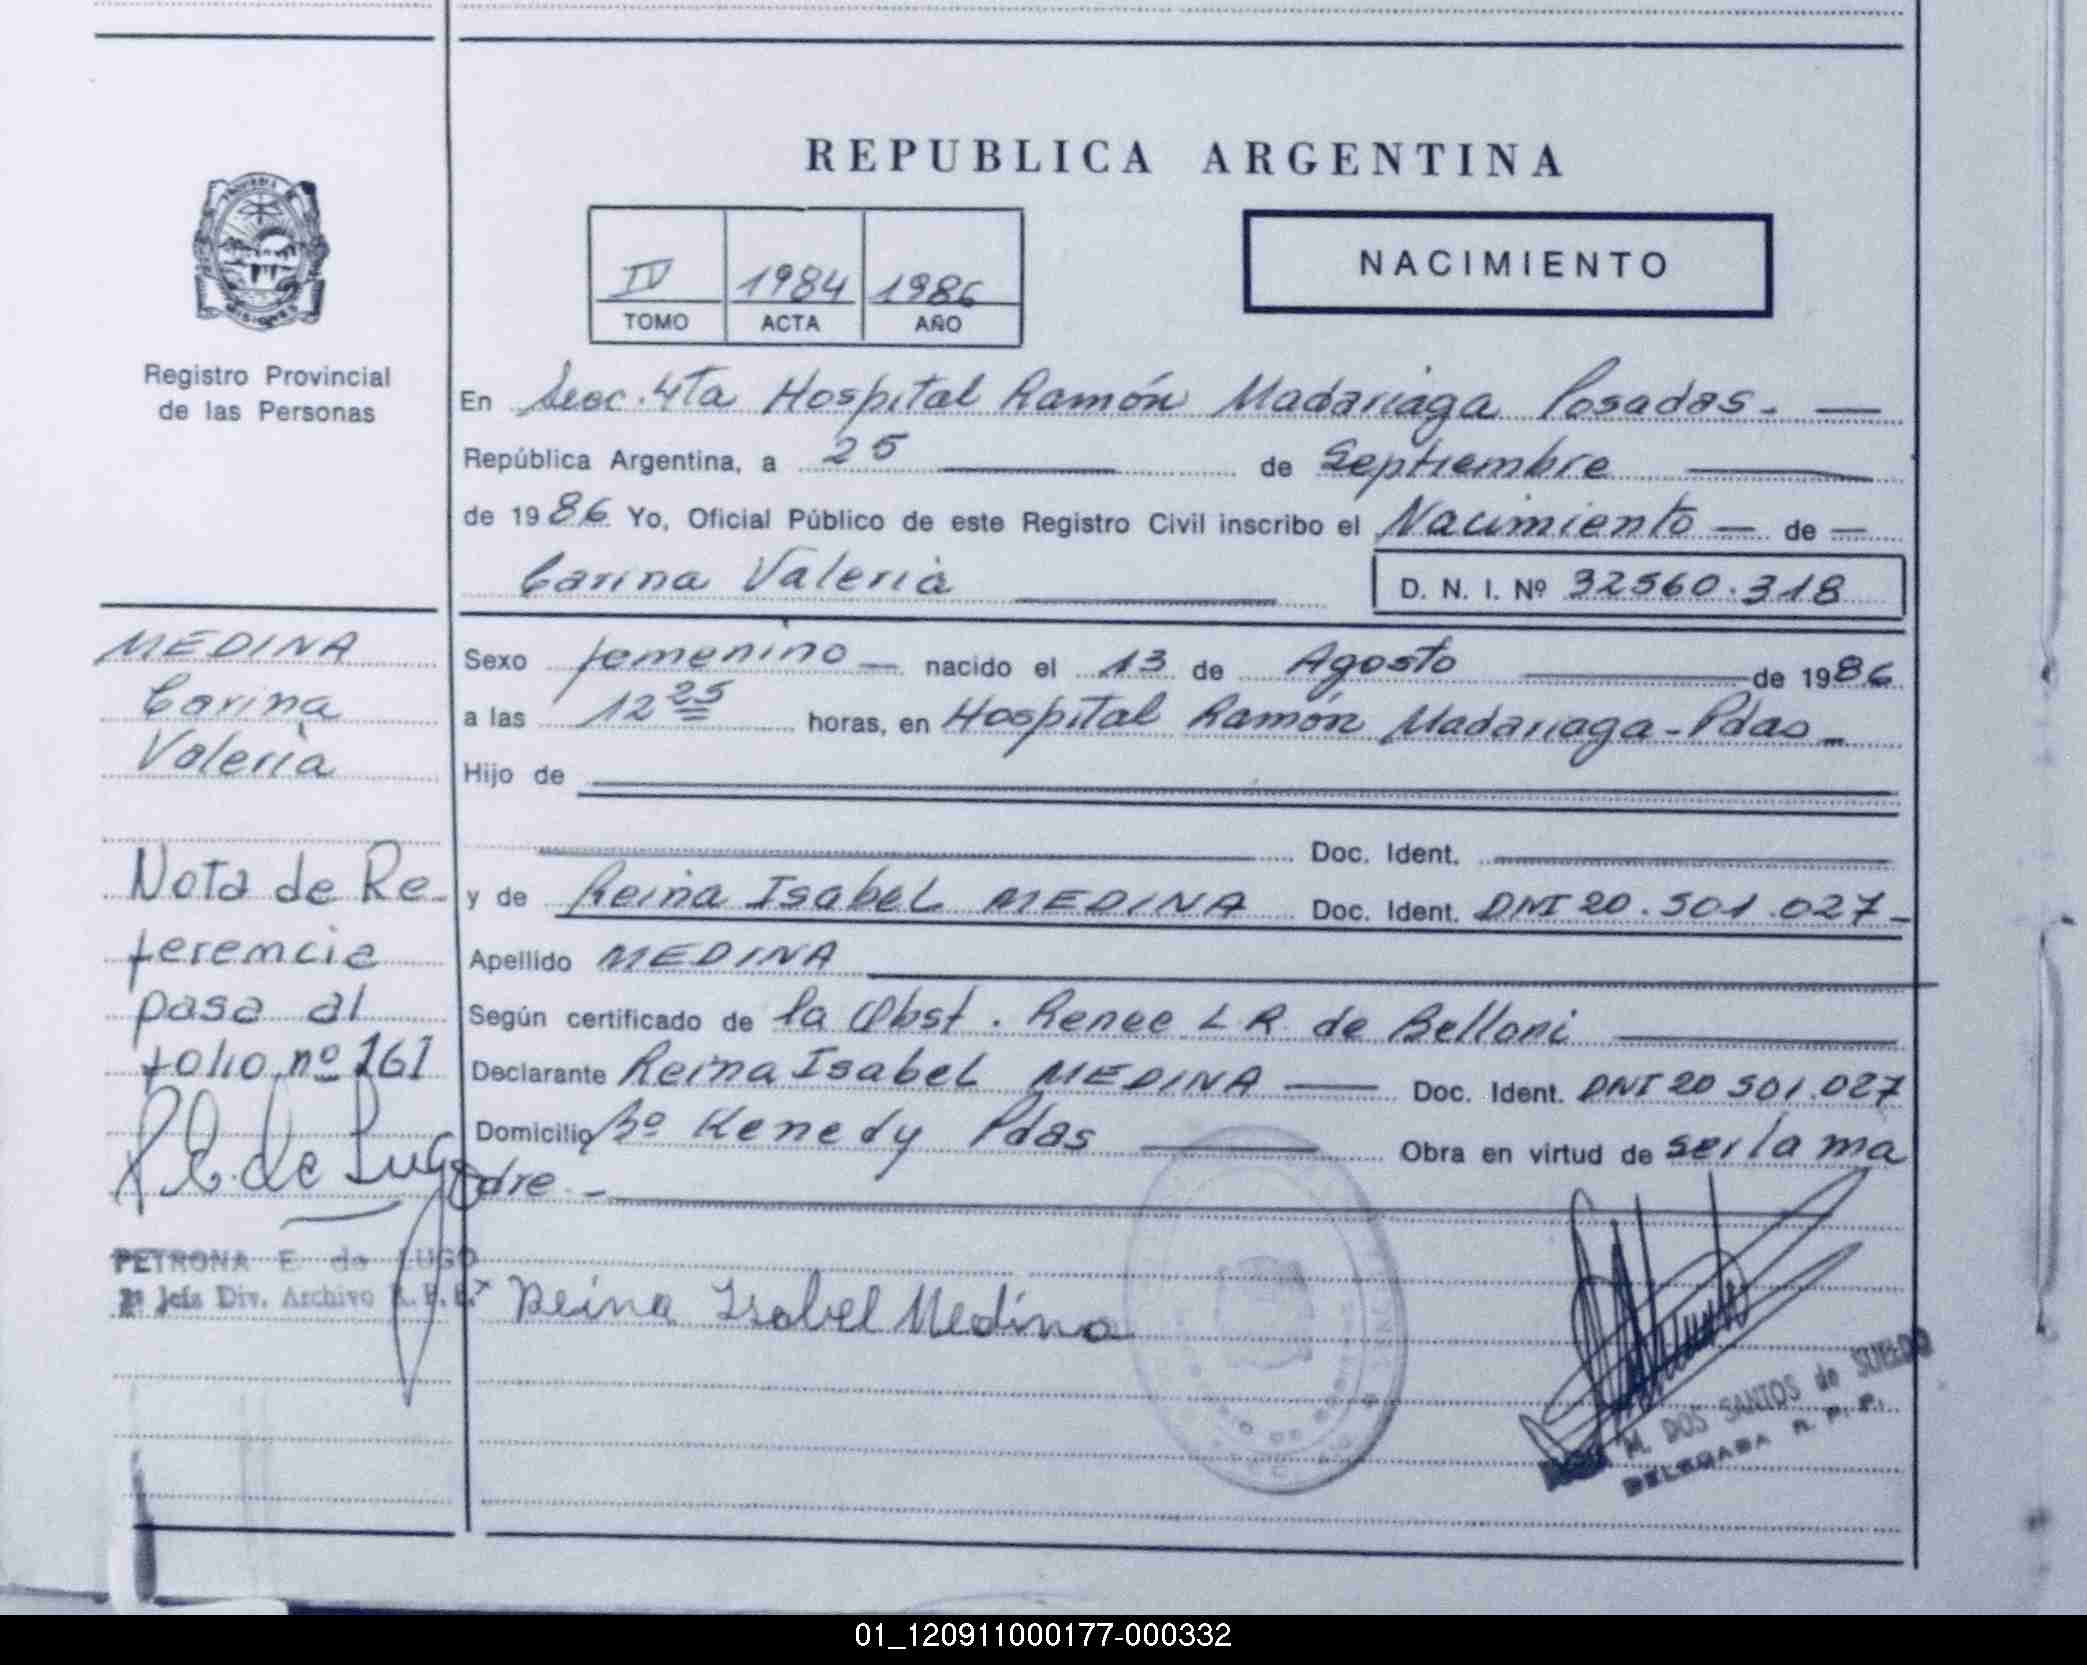 REPUBLICA ARGENTINA
IV 1984 1986
TOMO ACTA AÑO
NACIMIENTO
Registro Provincial
de las Personas
En Secc. 4ta Hospital Ramón Madariaga Posadas.
República Argentina, a 25 de Septiembre
de 1986 Yo, Oficial Público de este Registro Civil inscribo el Nacimiento de
Carina Valeria D. N. I. Nº 32560.318
MEDINA
Carina
Valeria
Nota de Re-
ferencia
pasa al
folio nº 161
P.E. de Lugo
PETRONA E. de LUGO
Jefa Div. Archivo
Sexo femenino nacido el 13 de Agosto de 1986
a las 12 25 horas, en Hospital Ramón Madariaga-Pdas
Hijo de
Doc. Ident.
y de Reina Isabel MEDINA Doc. Ident. DNI 20.501.027-
Apellido MEDINA
Según certificado de la Obst. Renee L R de Belloni
Declarante Reina Isabel MEDINA Doc. Ident. DNI 20 501.027
Domicilio Bº Kenedy Pdas Obra en virtud de ser la ma
dre.-
Reina Isabel Medina
M. DOS SANTOS de SUELDO
DELEGADA R. P. P.
01_120911000177-000332